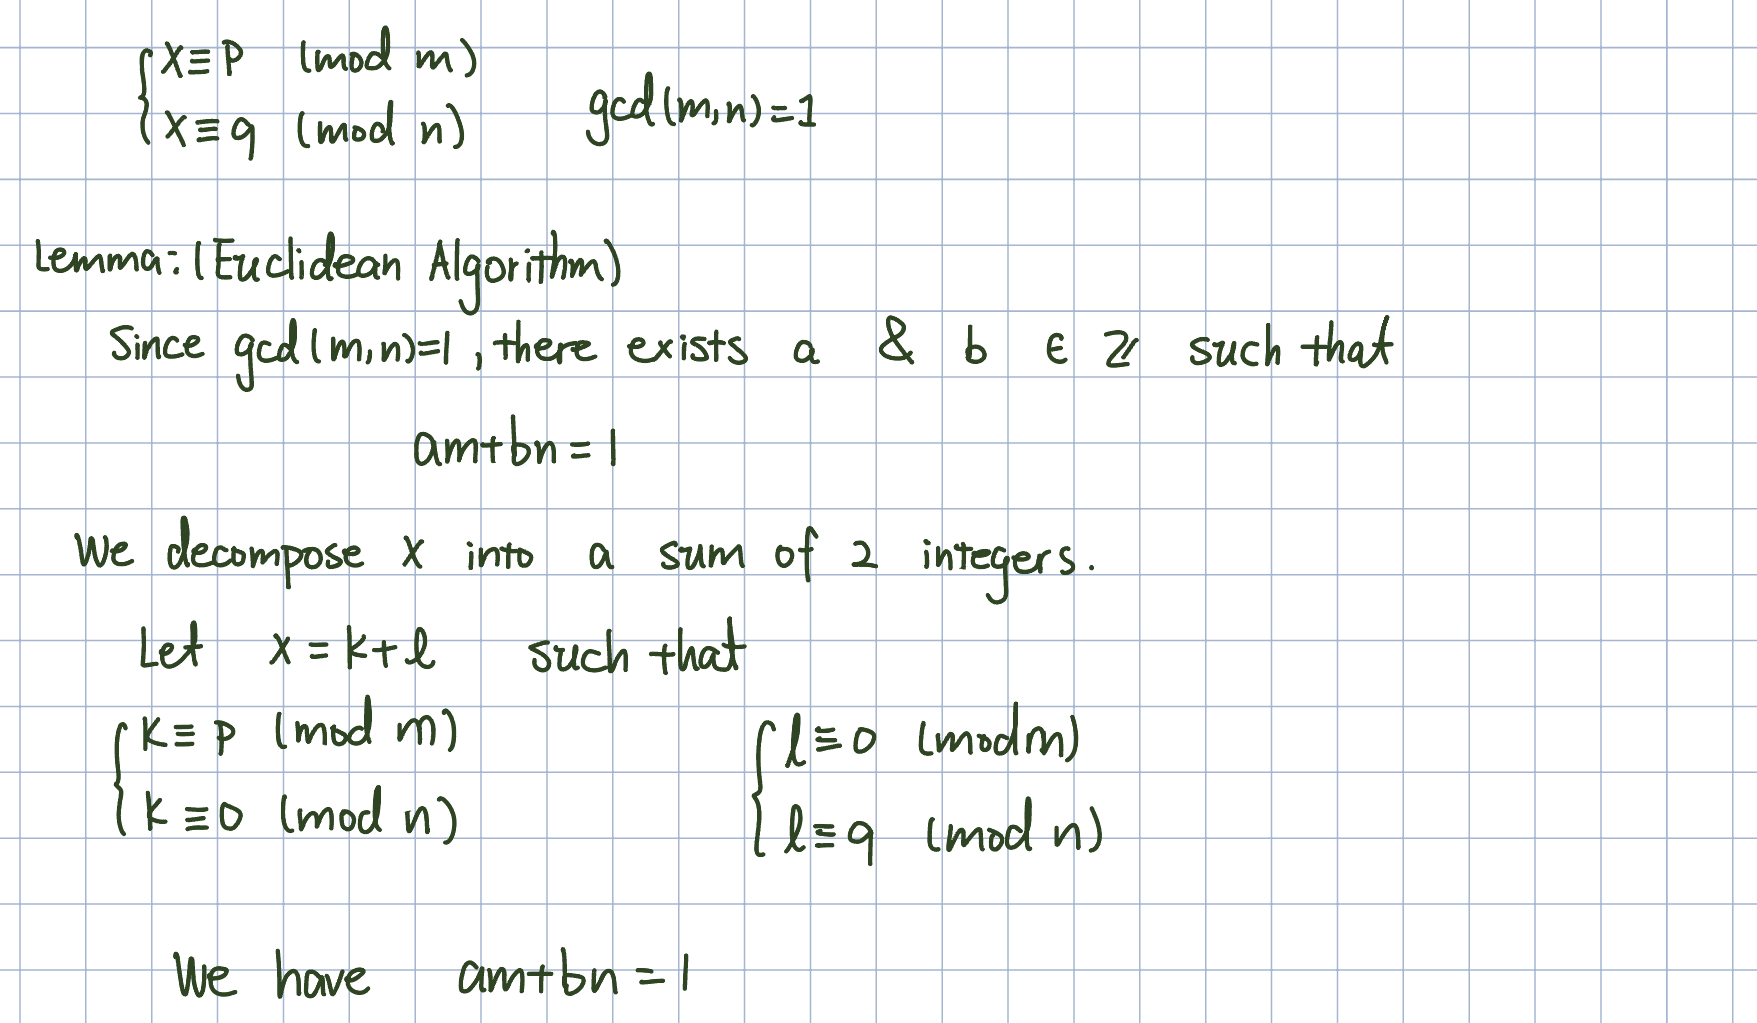 x≡p (mod m)
x≡q (mod n) gcd(m,n)=1
Lemma: (Euclidean Algorithm)
Since gcd(m,n)=1, there exists a & b ∈ ℤ such that
am+bn=1
We decompose x into a sum of 2 integers.
Let x=k+ℓ such that
k≡p (mod m) ℓ≡0 (mod m)
k≡0 (mod n) ℓ≡q (mod n)
We have am+bn=1